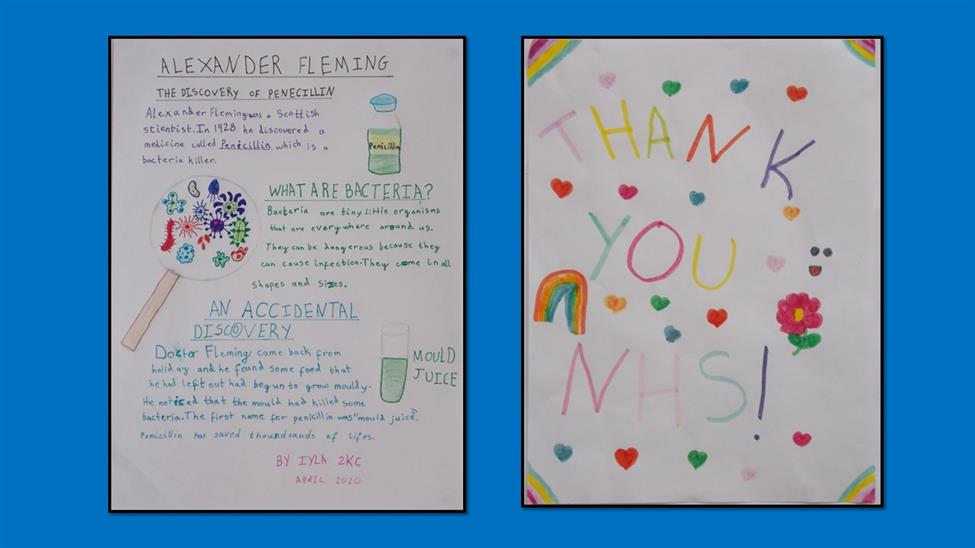 ALEXANDER FLEMING
THE DISCOVERY OF PENECILLIN
Alexander Fleming was a Scottish
scientist. In 1928 he discovered a
medicine called Penicillin which is a
bacteria killer.
Penicillin
WHAT ARE BACTERIA?
Bacteria are tiny little organisms
that are everywhere around us.
They can be dangerous because they
can cause infection. They come in all
shapes and sizes.
AN ACCIDENTAL
DISCOVERY
Doctor Fleming came back from
holiday and he found some food that
he had left out had begun to grow mouldy.
He noticed that the mould had killed some
bacteria. The first name for penicillin was "mould juice".
Penicillin has saved thoundsands of lifes.
MOULD
JUICE
BY IYLA 2KC
APRIL 2020
THANK
YOU
NHS!